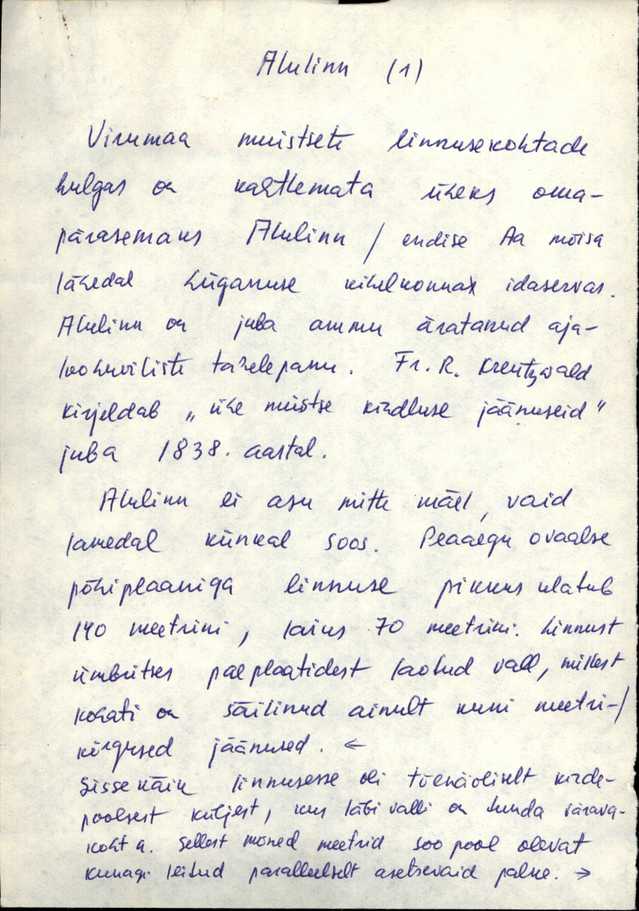 Alulinn (1)
Virumaa muistsete linnusekohtade
hulgas on kahtlemata üheks oma-
pärasemaks Alulinn / endise Aa mõisa
lähedal Lüganuse kihelkonnax idaservas.
Alulinn on juba ammu äratanud aja-
loohuviliste tähelepanu. Fr. R. Kreutzwald
kirjeldab „ühe muistse kindluse jäänuseid"
juba 1838. aastal.
Alulinn ei asu mitte mäel, vaid
lamedal künkal soos. Peaaegu ovaalse
põhiplaaniga linnuse pikkus ulatub
140 meetrini, laius 70 meetrini. Linnust
ümbritses paeplaatidest laotud vall, millest
kohati on säilinud ainult kuni meetri-/
kõrgused jäänused. ←
Sissekäik linnusesse oli tõenäoliselt kirde-
poolsest küljest, kus läbi valli on tunda värava-
koht a. Sellest mõned meetrid soo pool olevat
kunagi leitud paralleelselt asetsevaid palke. →